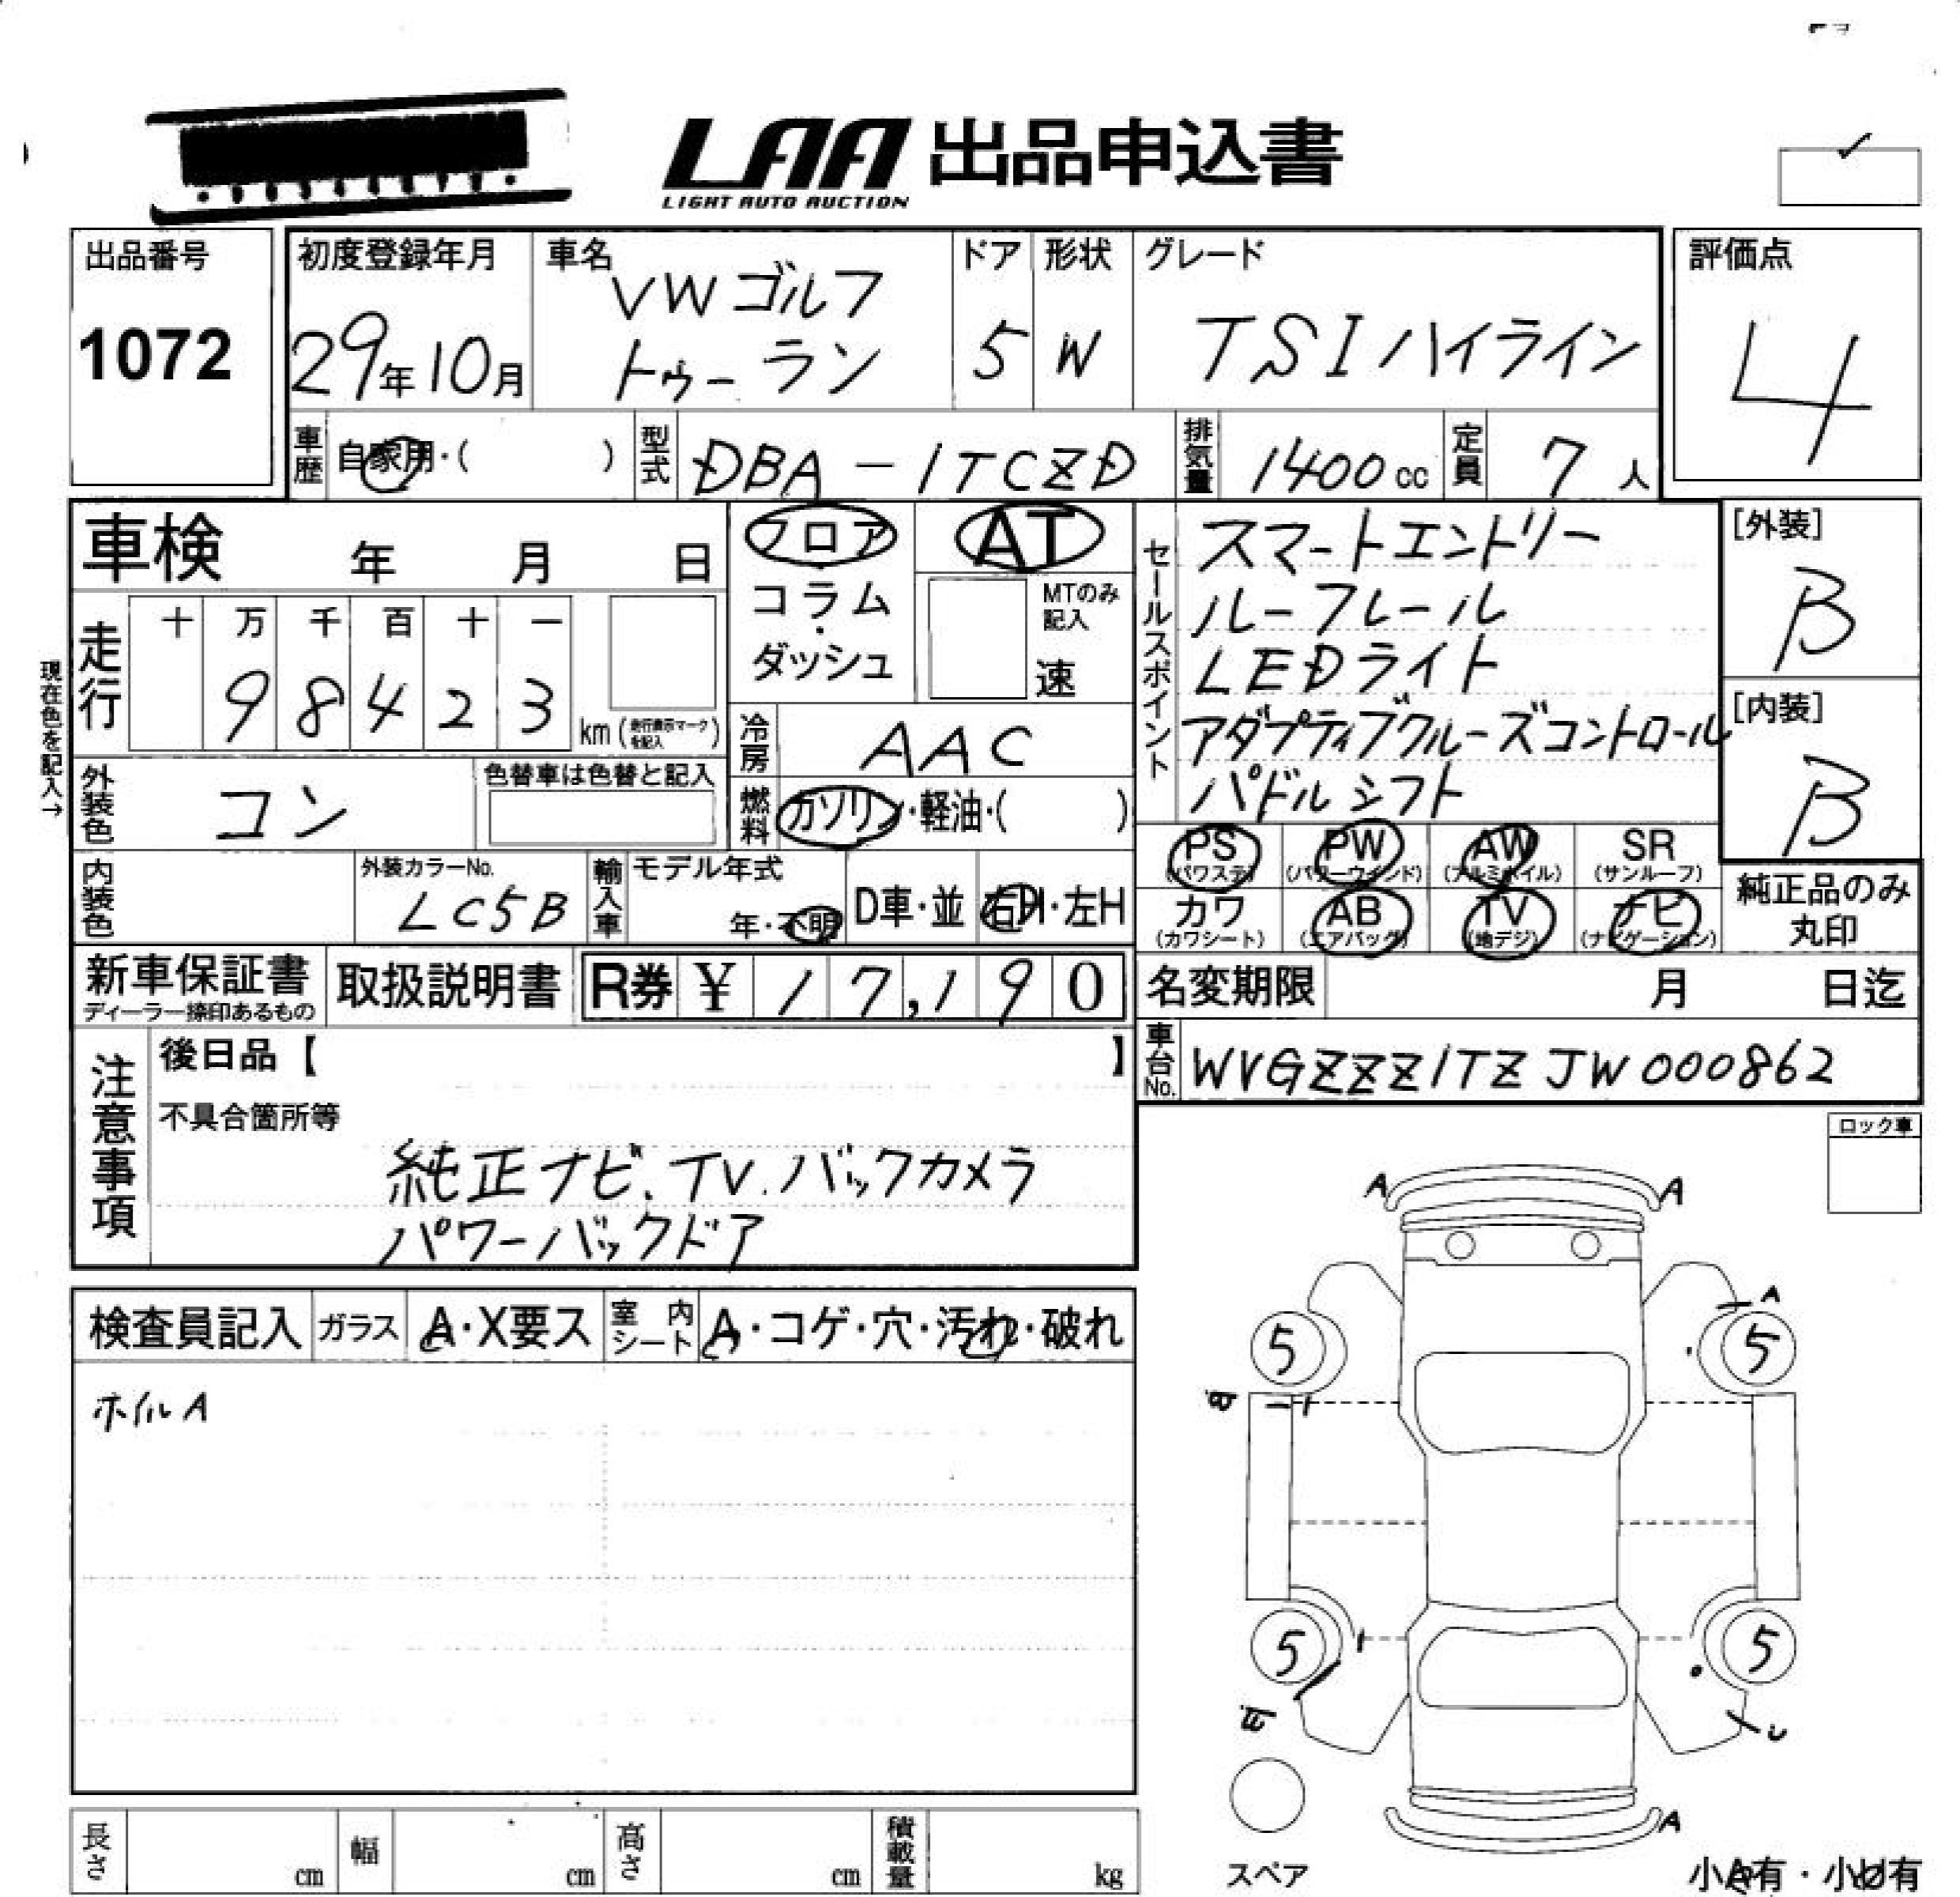 LAA 出品申込書
LIGHT AUTO AUCTION
出品番号
1072
初度登録年月
29年10月
車名
VWゴルフ
トゥーラン
ドア
5
形状
W
グレード
TSIハイライン
評価点
4
車歴
自家用・( )
型式
DBA-1TCZD
排気量
1400cc
定員
7人
車検 年 月 日
フロア
コラム
・
ダッシュ
AT
MTのみ
記入
速
セールスポイント
スマートエントリー
ルーフレール
LEDライト
アダプティブクルーズコントロール
パドルシフト
[外装]
B
[内装]
B
現在色を記入→
走行
十 万 千 百 十 一
9 8 4 2 3
km(走行表示マークを記入)
冷房
AAC
燃料
ガソリン・軽油・( )
外装色
コン
色替車は色替と記入
内装色
外装カラーNo.
LC5B
輸入車
モデル年式
年・不明
D車・並
右H・左H
PS
(パワステ)
PW
(パワーウインド)
AW
(アルミホイル)
SR
(サンルーフ)
カワ
(カワシート)
AB
(エアバッグ)
TV
(地デジ)
ナビ
(ナビゲーション)
純正品のみ
丸印
新車保証書
ディーラー捺印あるもの
取扱説明書
R券 ¥ 17,190
名変期限 月 日迄
車台No.
WVGZZZ1TZJW000862
注意事項
後日品【 】
不具合箇所等
純正ナビ.TV.バックカメラ
パワーバックドア
ロック車
検査員記入
ガラス
A・X要ス
室内シート
A・コゲ・穴・汚れ・破れ
ホイルA
A A
A
5 5
5 5
A
スペア
小A有・小U有
長さ cm
幅 cm
高さ cm
積載量 kg